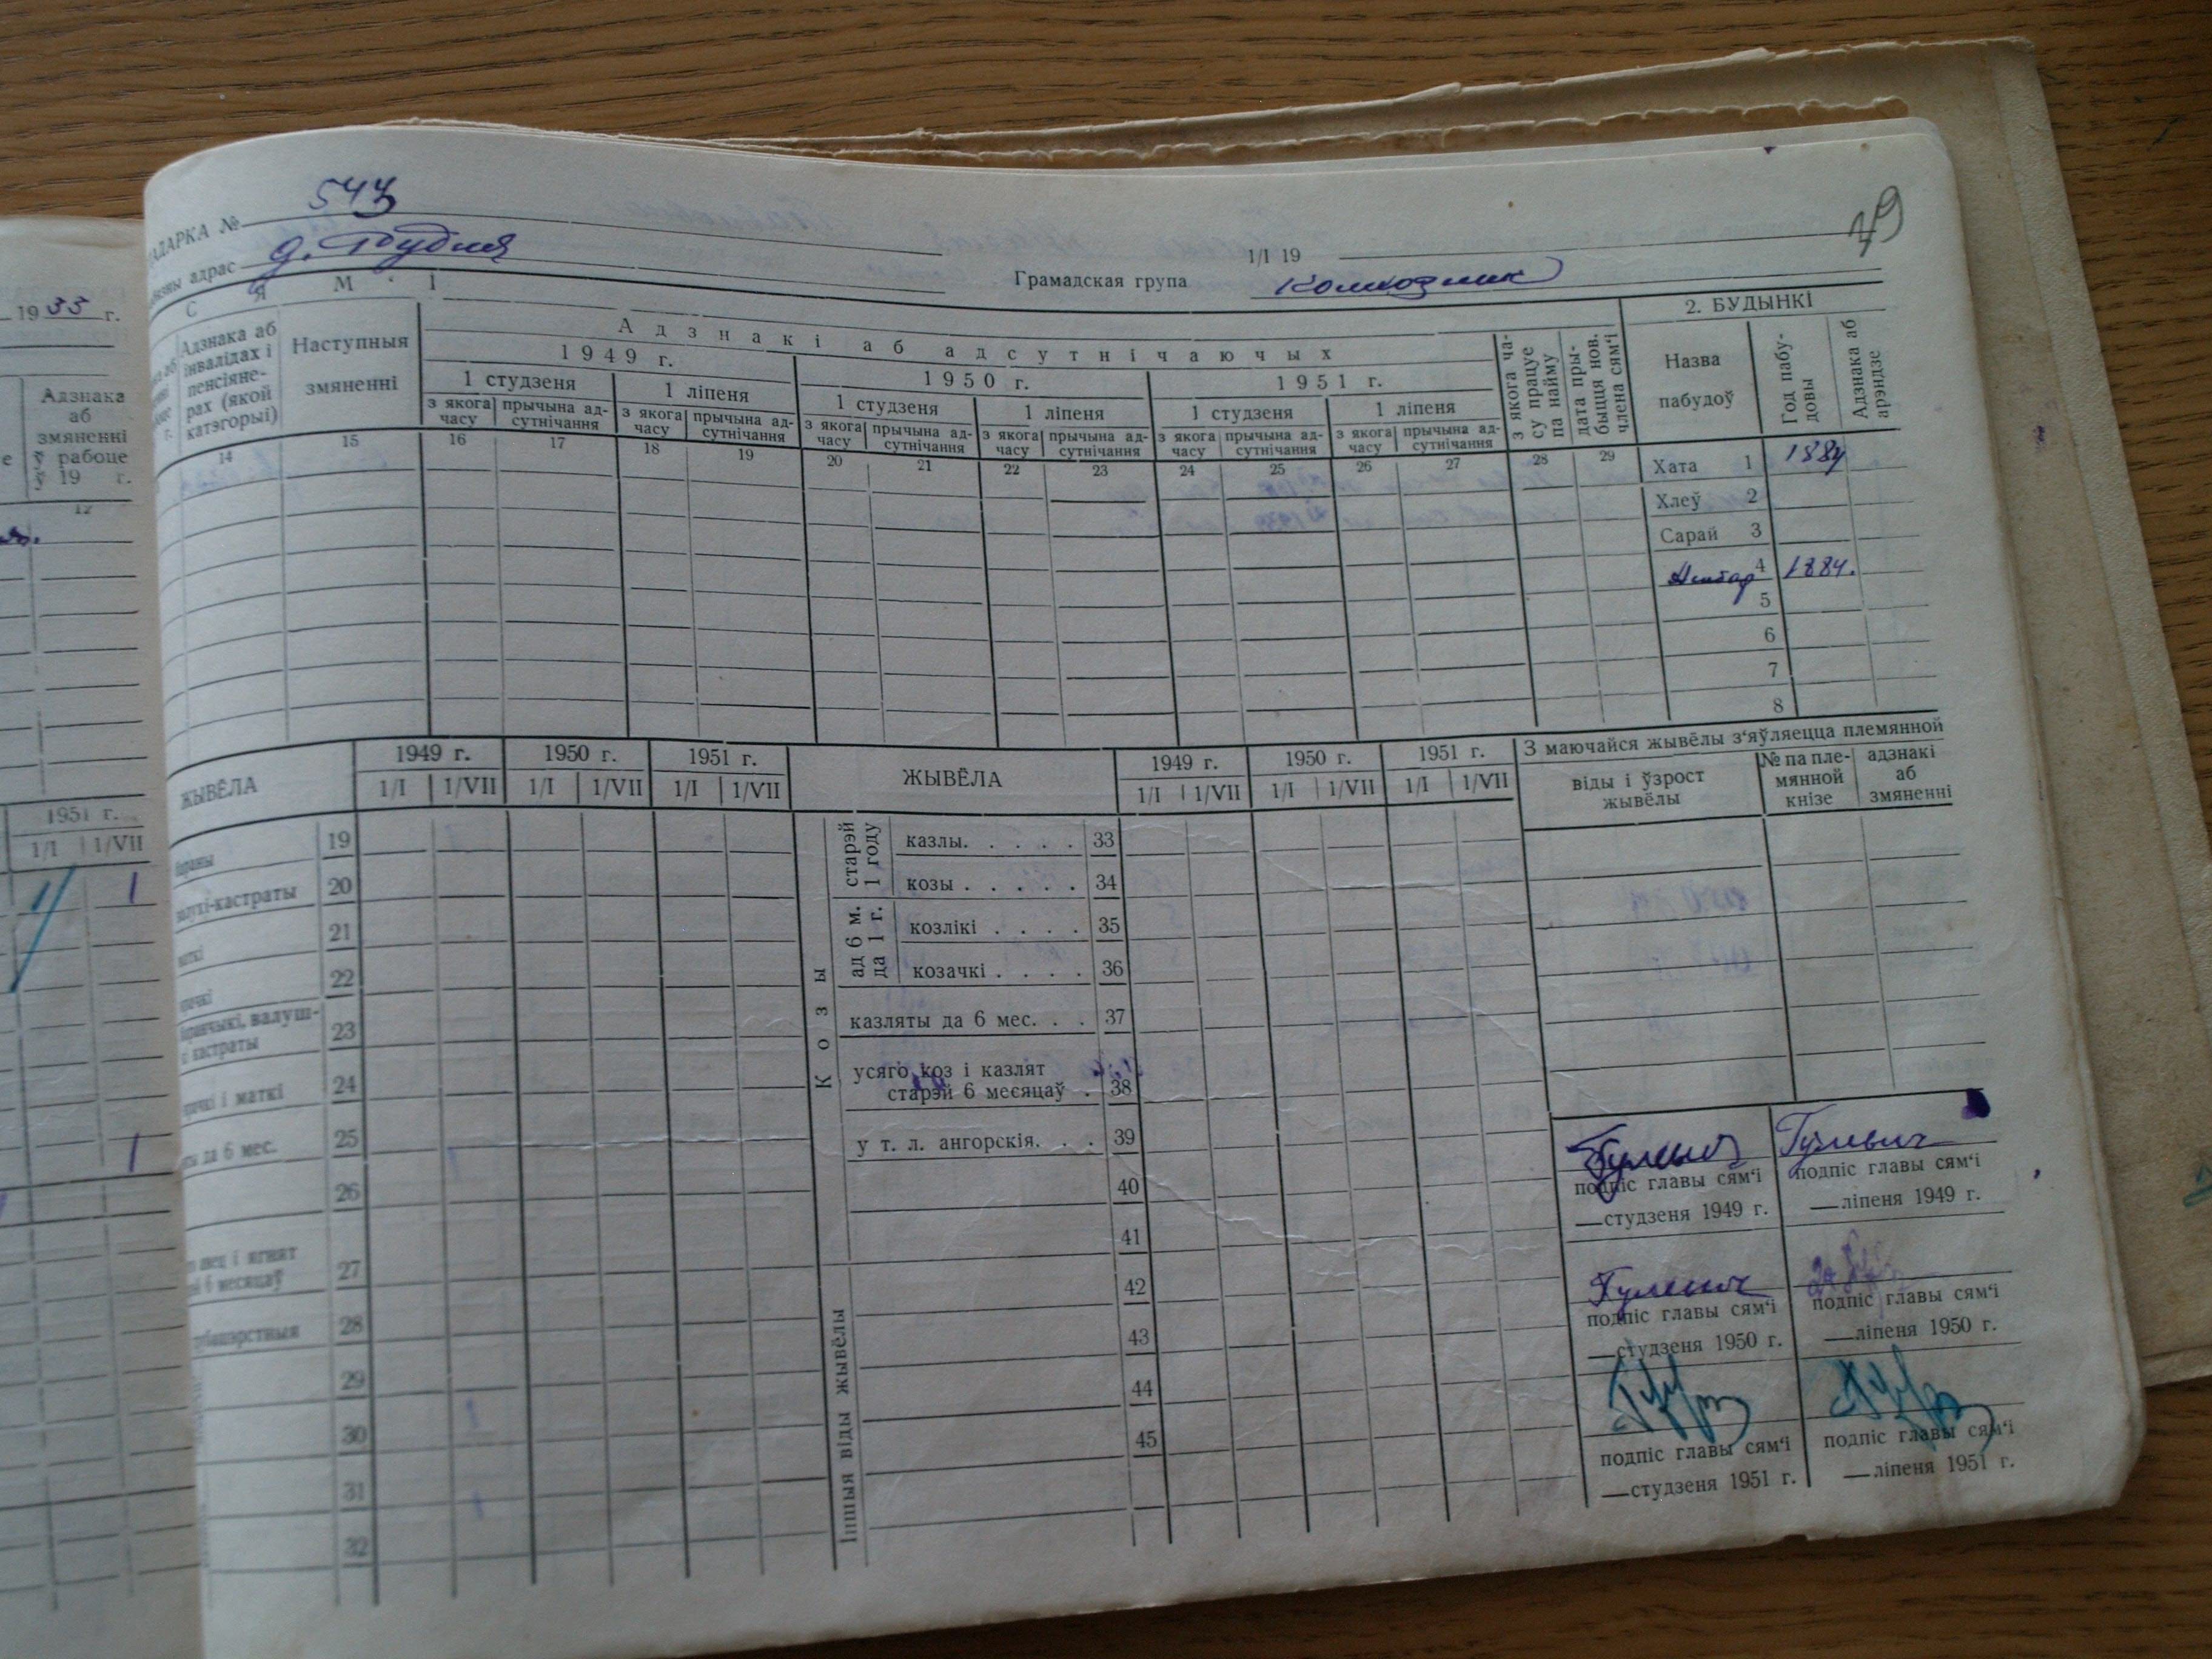 АДАРКА № 543
адрас д. Рудня
1/I 19
49
Грамадская група Колхозник
19 33 г.
С Я М ' І
Адзнака аб змяненні ў рабоце ў 19 г.
12
Адзнака аб інвалідах і пенсіяне-рах (якой катэгорыі)
Наступныя змяненні
Адзнакі аб адсутнічаючых
1949 г.
1950 г.
1951 г.
1 студзеня
1 ліпеня
1 студзеня
1 ліпеня
1 студзеня
1 ліпеня
з якога часу
прычына ад-сутнічання
з якога часу
прычына ад-сутнічання
з якога часу
прычына ад-сутнічання
з якога часу
прычына ад-сутнічання
з якога часу
прычына ад-сутнічання
з якога часу
прычына ад-сутнічання
з якога ча-су працуе па найму
дата пры-быцця нов. члена сям'і
2. БУДЫНКІ
Назва пабудоў
Год пабу-довы
Адзнака аб арэндзе
14 15 16 17 18 19 20 21 22 23 24 25 26 27 28 29
Хата 1 1884
Хлеў 2
Сарай 3
Амбар 4 1884.
5
6
7
8
ЖЫВЁЛА
1949 г. 1950 г. 1951 г.
1/I 1/VII 1/I 1/VII 1/I 1/VII
ЖЫВЁЛА
1949 г. 1950 г. 1951 г.
1/I 1/VII 1/I 1/VII 1/I 1/VII
З маючайся жывёлы з'яўляецца племянной
віды і ўзрост жывёлы
№ па пле-мянной кнізе
адзнакі аб змяненні
1951 г.
1/I 1/VII
1 1
1
бараны 19
валухі-кастраты 20
маткі 21
ярачкі 22
баранчыкі, валуш-кі кастраты 23
ярачкі і маткі 24
да 6 мес. 25
26
авец і ягнят 6 месяцаў 27
28
29
30
31
32
Козы
старэй 1 году
казлы. 33
козы 34
ад 6 м. да 1 г.
козлікі 35
козачкі 36
казляты да 6 мес. 37
усяго коз і казлят
старэй 6 месяцаў 38
у т. л. ангорскія. 39
40
41
Іншыя віды жывёлы
42
43
44
45
Гулевич
подпіс главы сям'і
студзеня 1949 г.
Гулевич
подпіс главы сям'і
ліпеня 1949 г.
Гулевич
подпіс главы сям'і
студзеня 1950 г.
подпіс главы сям'і
ліпеня 1950 г.
подпіс главы сям'і
студзеня 1951 г.
подпіс главы сям'і
ліпеня 1951 г.